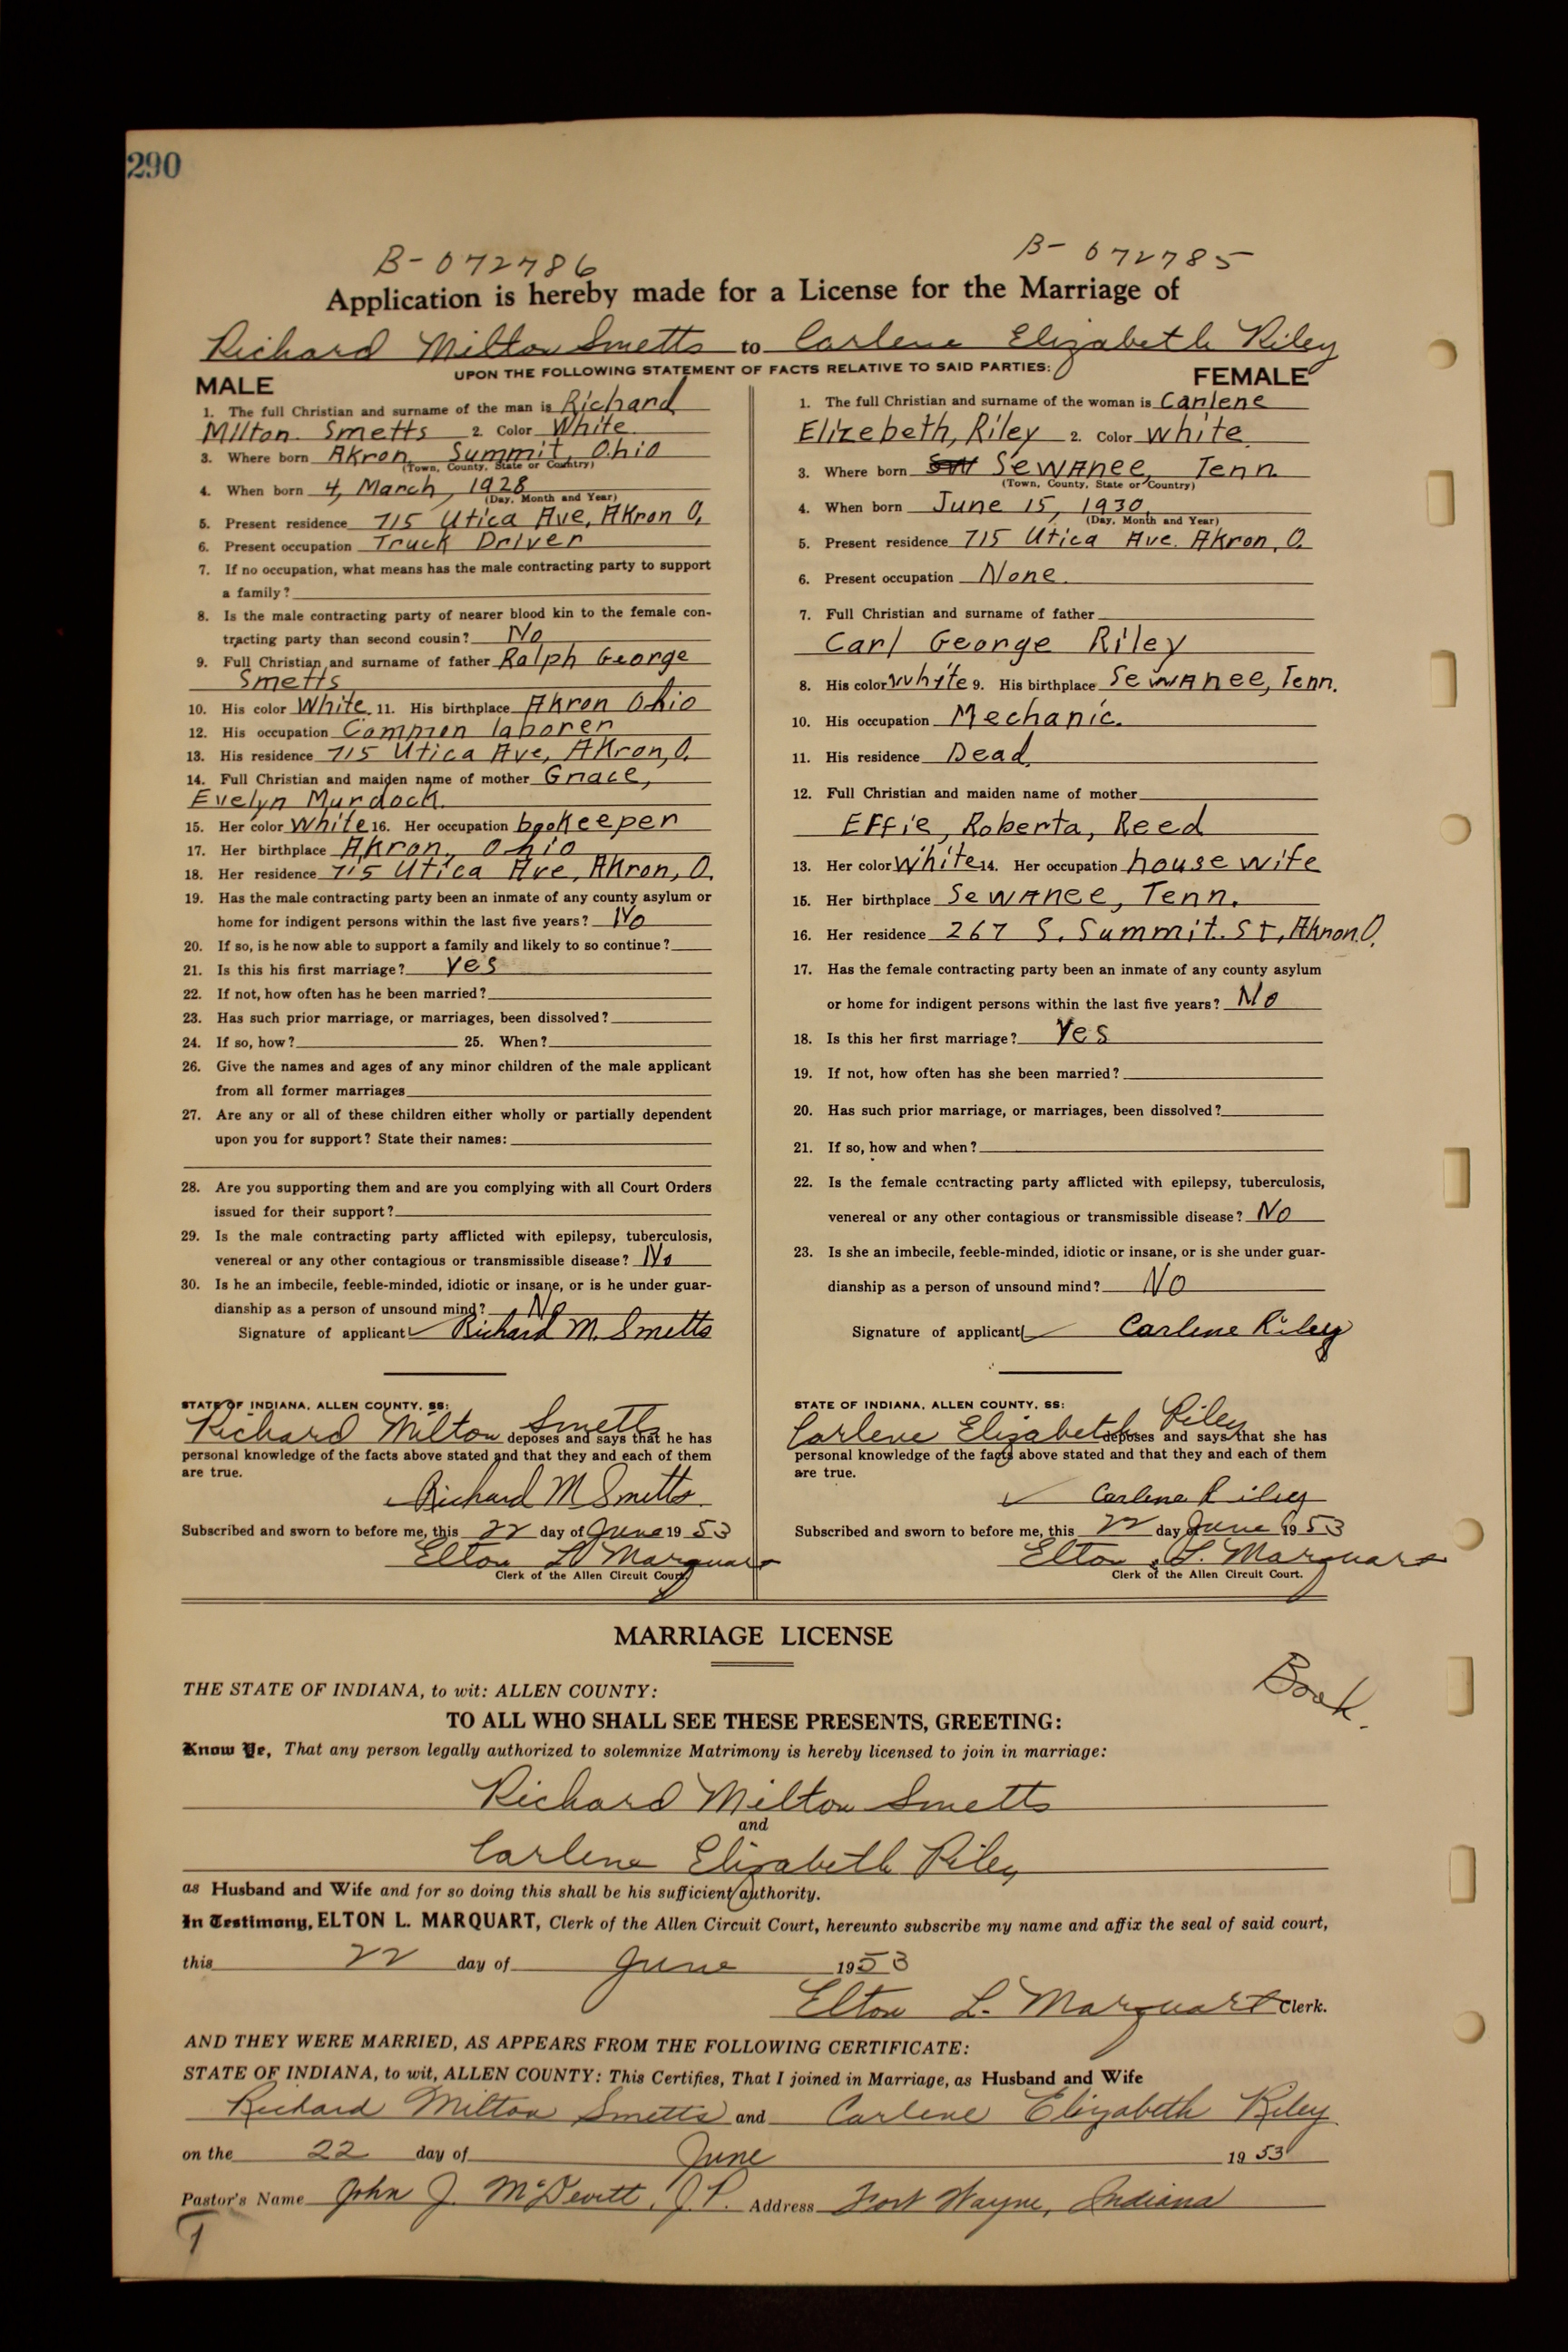 290
B-072786
B-072785
Application is hereby made for a License for the Marriage of
Richard Milton Smetts to Carlene Elizabeth Riley
UPON THE FOLLOWING STATEMENT OF FACTS RELATIVE TO SAID PARTIES:
MALE
1. The full Christian and surname of the man is Richard
Milton Smetts 2. Color White
3. Where born Akron, Summit, Ohio
(Town, County, State or Country)
4. When born 4, March, 1928
(Day, Month and Year)
5. Present residence 715 Utica Ave, Akron O.
6. Present occupation Truck Driver
7. If no occupation, what means has the male contracting party to support
a family?
8. Is the male contracting party of nearer blood kin to the female con-
tracting party than second cousin? No
9. Full Christian and surname of father Ralph George
Smetts
10. His color White. 11. His birthplace Akron Ohio
12. His occupation Common laborer
13. His residence 715 Utica Ave, Akron, O.
14. Full Christian and maiden name of mother Grace,
Evelyn Murdock.
15. Her color White 16. Her occupation bookeeper
17. Her birthplace Akron, Ohio
18. Her residence 715 Utica Ave, Akron, O.
19. Has the male contracting party been an inmate of any county asylum or
home for indigent persons within the last five years? No
20. If so, is he now able to support a family and likely to so continue?
21. Is this his first marriage? Yes
22. If not, how often has he been married?
23. Has such prior marriage, or marriages, been dissolved?
24. If so, how? 25. When?
26. Give the names and ages of any minor children of the male applicant
from all former marriages
27. Are any or all of these children either wholly or partially dependent
upon you for support? State their names:
28. Are you supporting them and are you complying with all Court Orders
issued for their support?
29. Is the male contracting party afflicted with epilepsy, tuberculosis,
venereal or any other contagious or transmissible disease? No
30. Is he an imbecile, feeble-minded, idiotic or insane, or is he under guar-
dianship as a person of unsound mind? No
Signature of applicant Richard M. Smetts
STATE OF INDIANA, ALLEN COUNTY, SS:
Richard Milton Smetts deposes and says that he has
personal knowledge of the facts above stated and that they and each of them
are true.
Richard M Smetts
Subscribed and sworn to before me, this 22 day of June 19 53
Elton L. Marquart
Clerk of the Allen Circuit Court.
FEMALE
1. The full Christian and surname of the woman is Carlene
Elizebeth, Riley 2. Color white
3. Where born Sewanee, Tenn
(Town, County, State or Country)
4. When born June 15, 1930
(Day, Month and Year)
5. Present residence 715 Utica Ave. Akron, O.
6. Present occupation None
7. Full Christian and surname of father
Carl George Riley
8. His color White 9. His birthplace Sewanee, Tenn.
10. His occupation Mechanic.
11. His residence Dead
12. Full Christian and maiden name of mother
Effie, Roberta, Reed
13. Her color White 14. Her occupation house wife
15. Her birthplace Sewanee, Tenn.
16. Her residence 267 S. Summit. St, Akron.O.
17. Has the female contracting party been an inmate of any county asylum
or home for indigent persons within the last five years? No
18. Is this her first marriage? Yes
19. If not, how often has she been married?
20. Has such prior marriage, or marriages, been dissolved?
21. If so, how and when?
22. Is the female contracting party afflicted with epilepsy, tuberculosis,
venereal or any other contagious or transmissible disease? No
23. Is she an imbecile, feeble-minded, idiotic or insane, or is she under guar-
dianship as a person of unsound mind? No
Signature of applicant Carlene Riley
STATE OF INDIANA, ALLEN COUNTY, SS:
Carlene Elizabeth Riley deposes and says that she has
personal knowledge of the facts above stated and that they and each of them
are true.
Carlene Riley
Subscribed and sworn to before me, this 22 day of June 19 53
Elton L. Marquart
Clerk of the Allen Circuit Court.
MARRIAGE LICENSE
Book.
THE STATE OF INDIANA, to wit: ALLEN COUNTY:
TO ALL WHO SHALL SEE THESE PRESENTS, GREETING:
Know Ye, That any person legally authorized to solemnize Matrimony is hereby licensed to join in marriage:
Richard Milton Smetts
and
Carlene Elizabeth Riley
as Husband and Wife and for so doing this shall be his sufficient authority.
In Testimony, ELTON L. MARQUART, Clerk of the Allen Circuit Court, hereunto subscribe my name and affix the seal of said court,
this 22 day of June 1953
Elton L. Marquart Clerk.
AND THEY WERE MARRIED, AS APPEARS FROM THE FOLLOWING CERTIFICATE:
STATE OF INDIANA, to wit, ALLEN COUNTY: This Certifies, That I joined in Marriage, as Husband and Wife
Richard Milton Smetts and Carlene Elizabeth Riley
on the 22 day of June 19 53
Pastor's Name John J. McDevitt, J.P. Address Fort Wayne, Indiana